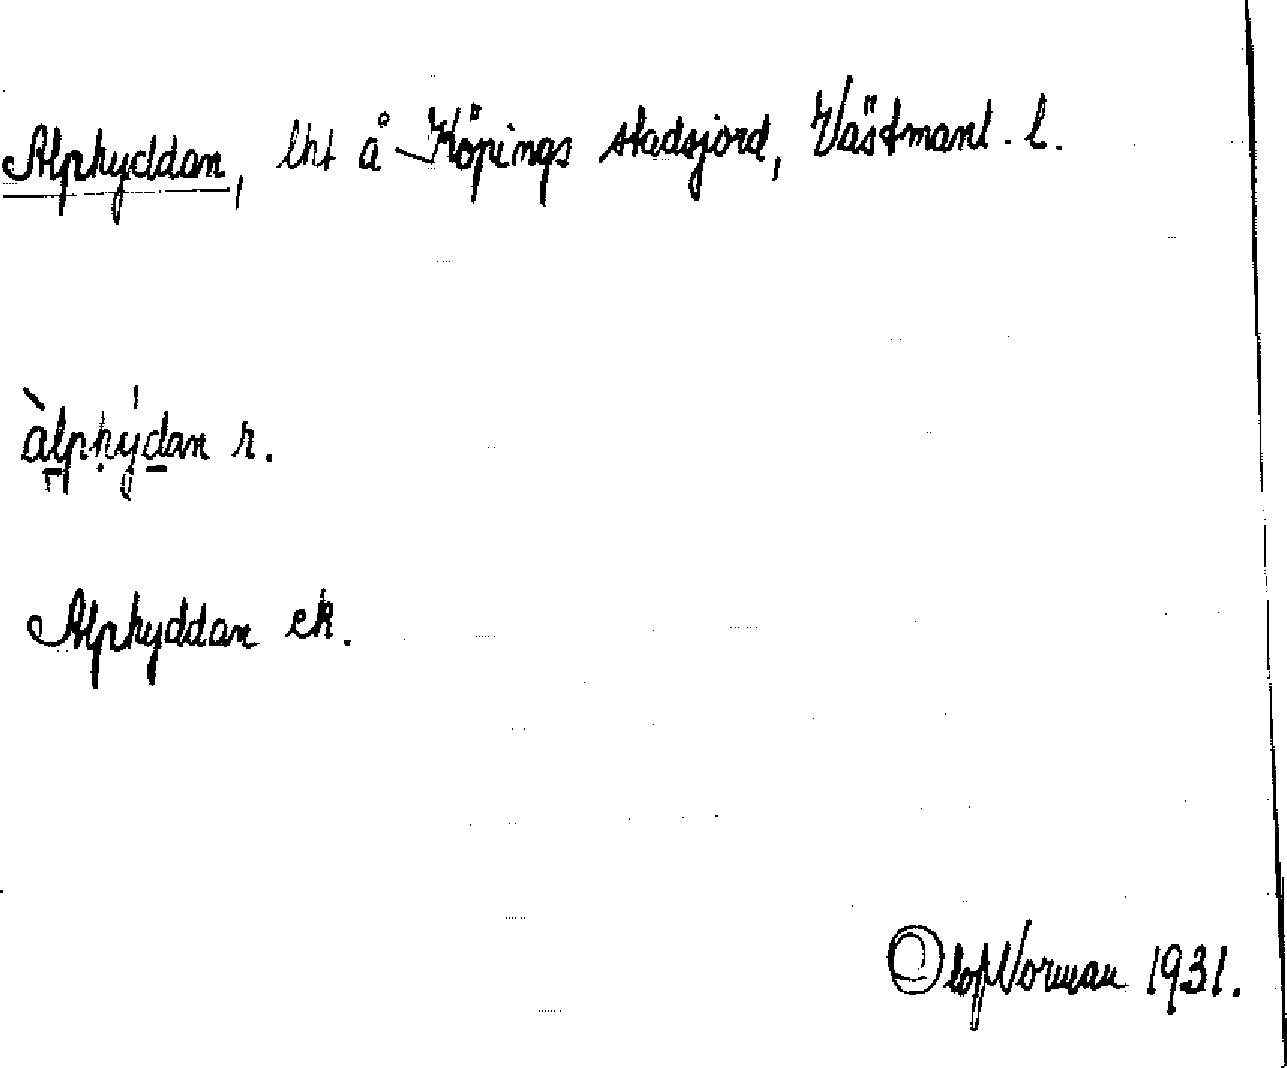 Alphyddan, lht å Köpings stadsjord, Västmanl. l.
àlphýdan r.
Alphyddan ek.
Olof Norman 1931.